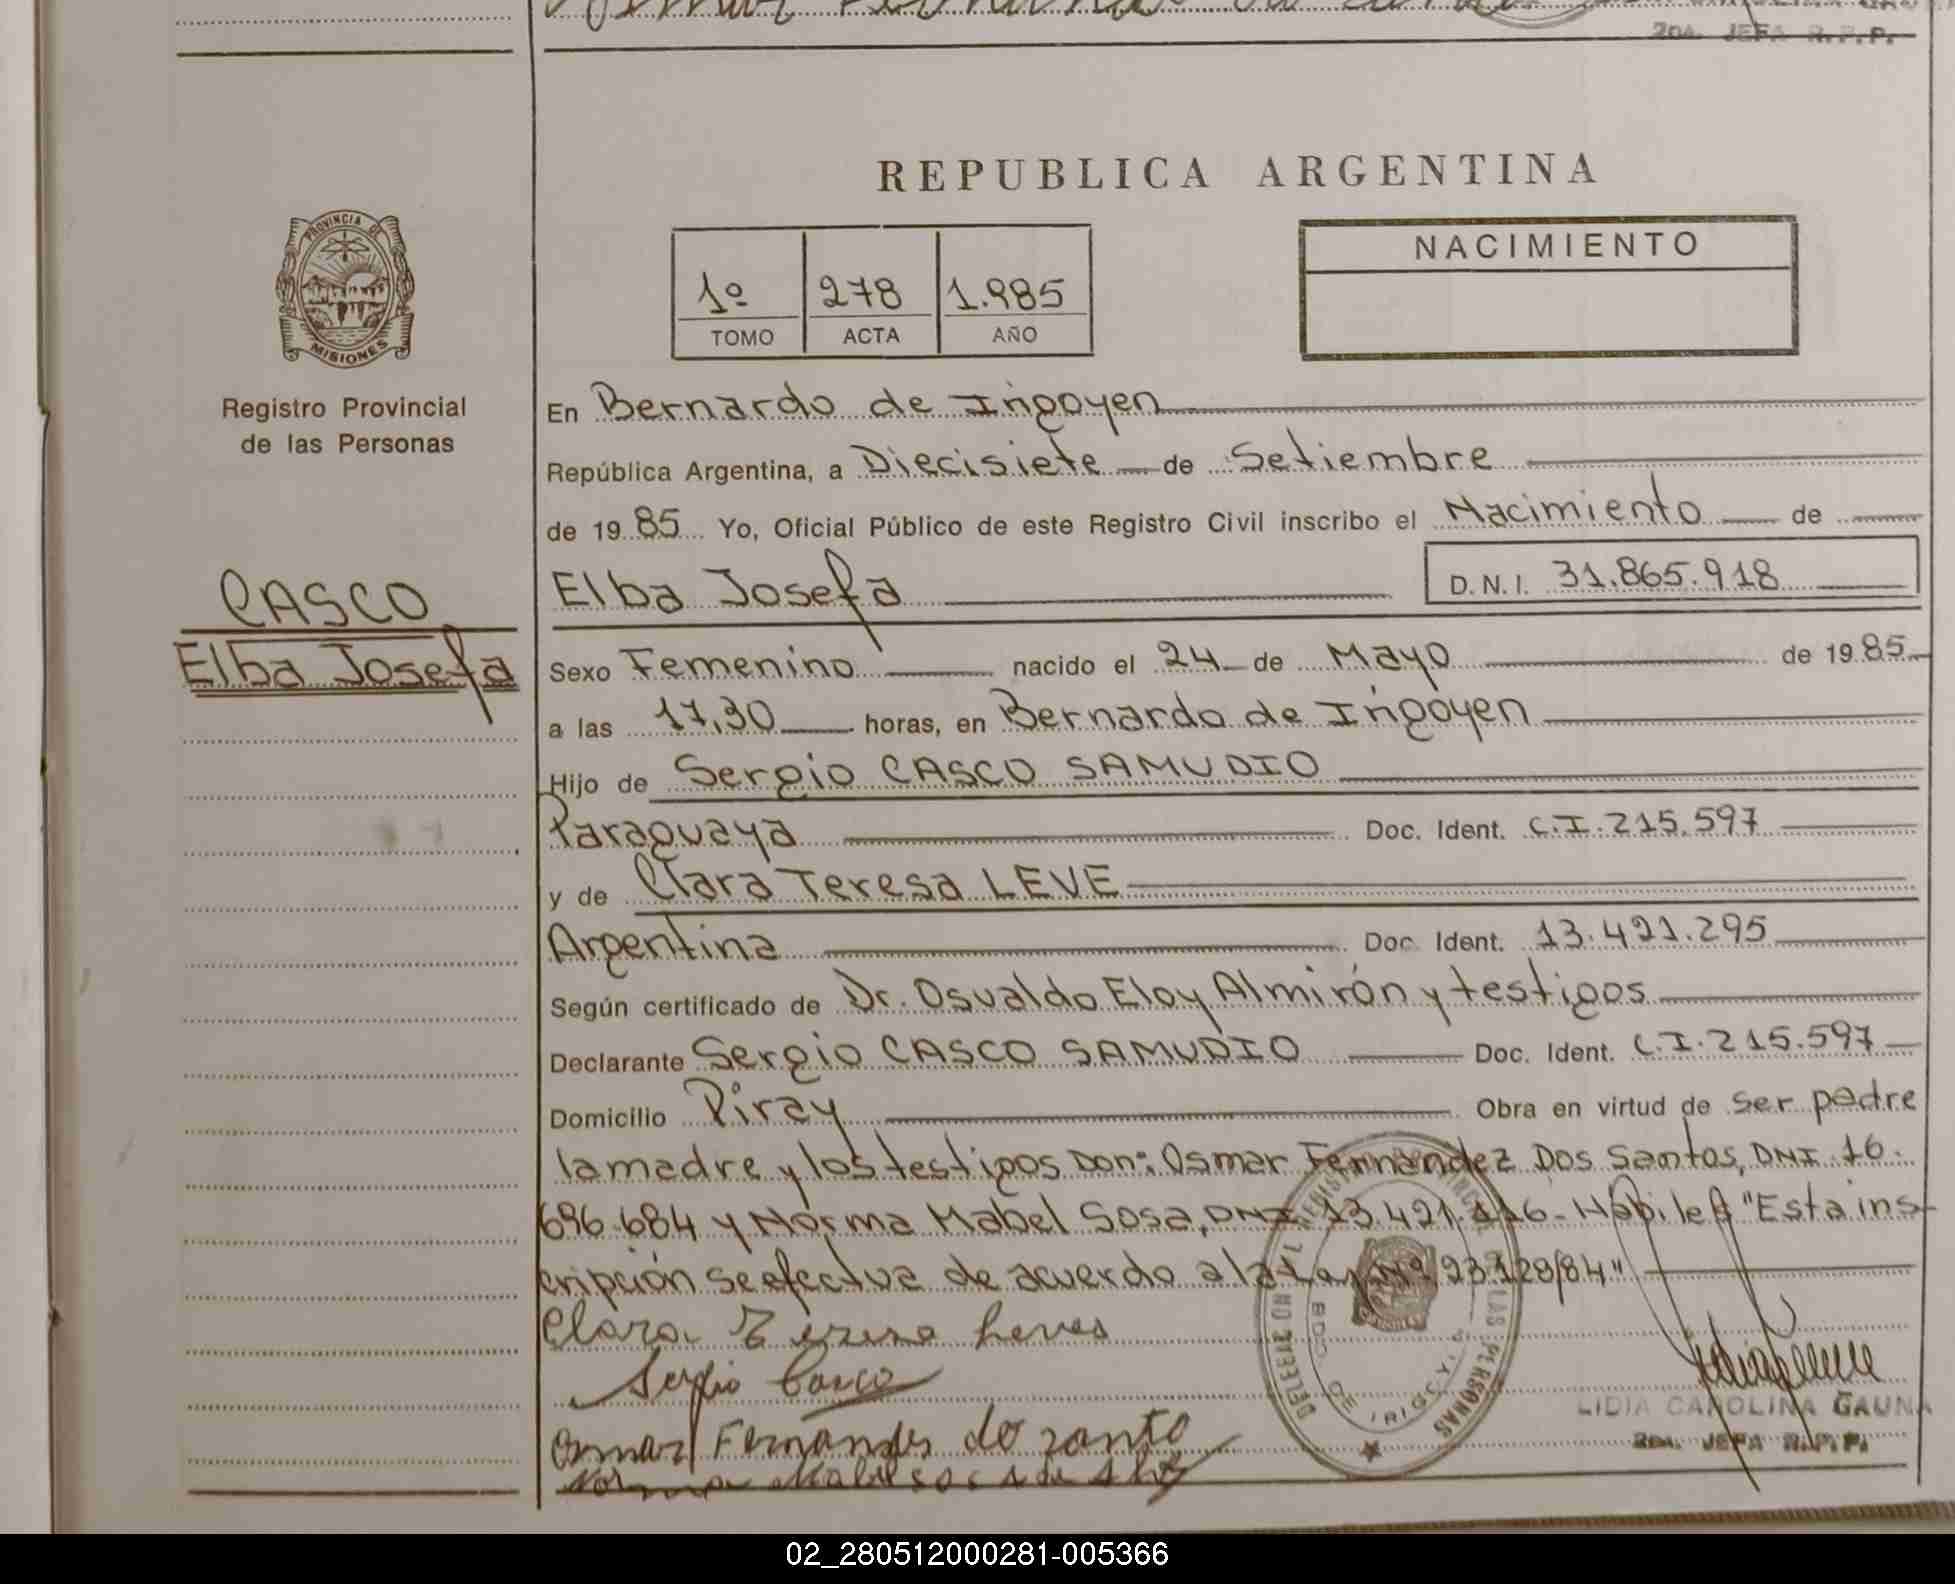 2da. JEFA R.P.P.
REPUBLICA ARGENTINA
PROVINCIA DE
MISIONES
Registro Provincial
de las Personas
1º 278 1.985
TOMO ACTA AÑO
NACIMIENTO
En Bernardo de Irigoyen
República Argentina, a Diecisiete de Setiembre
de 1985 Yo, Oficial Público de este Registro Civil inscribo el Nacimiento de
CASCO
Elba Josefa
Elba Josefa D.N.I. 31.865.918
Sexo Femenino nacido el 24 de Mayo de 1985
a las 17,30 horas, en Bernardo de Irigoyen
Hijo de Sergio CASCO SAMUDIO
Paraguaya Doc. Ident. C.I. 215.597
y de Clara Teresa LEVE
Argentina Doc. Ident. 13.421.295
Según certificado de Dr. Osvaldo Eloy Almirón y testigos
Declarante Sergio CASCO SAMUDIO Doc. Ident. C.I. 215.597
Domicilio Piray Obra en virtud de ser padre
la madre y los testigos Don: Osmar Fernandez Dos Santos, DNI 16.
696.684 y Norma Mabel Sosa, DNI 13.421.116- Hábiles "Esta ins-
cripción se efectua de acuerdo a la Ley Nº 23.128/84"
Clara Leves
Sergio Casco
Osmar Fernandes do santo
Norma
DELEGACION DEL REGISTRO PROVINCIAL DE LAS PERSONAS
BDO. DE IRIGOYEN
LIDIA CAROLINA GAUNA
2da. JEFA R.P.P.
02_280512000281-005366